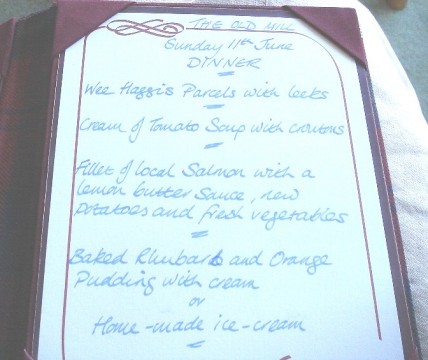 THE OLD MILL
Sunday 11th June
DINNER
Wee Haggis Parcels with leeks
Cream of Tomato Soup with croutons
Fillet of local Salmon with a
lemon butter sauce, new
potatoes and fresh vegetables
Baked Rhubarb and Orange
Pudding with cream
or
Home-made ice-cream